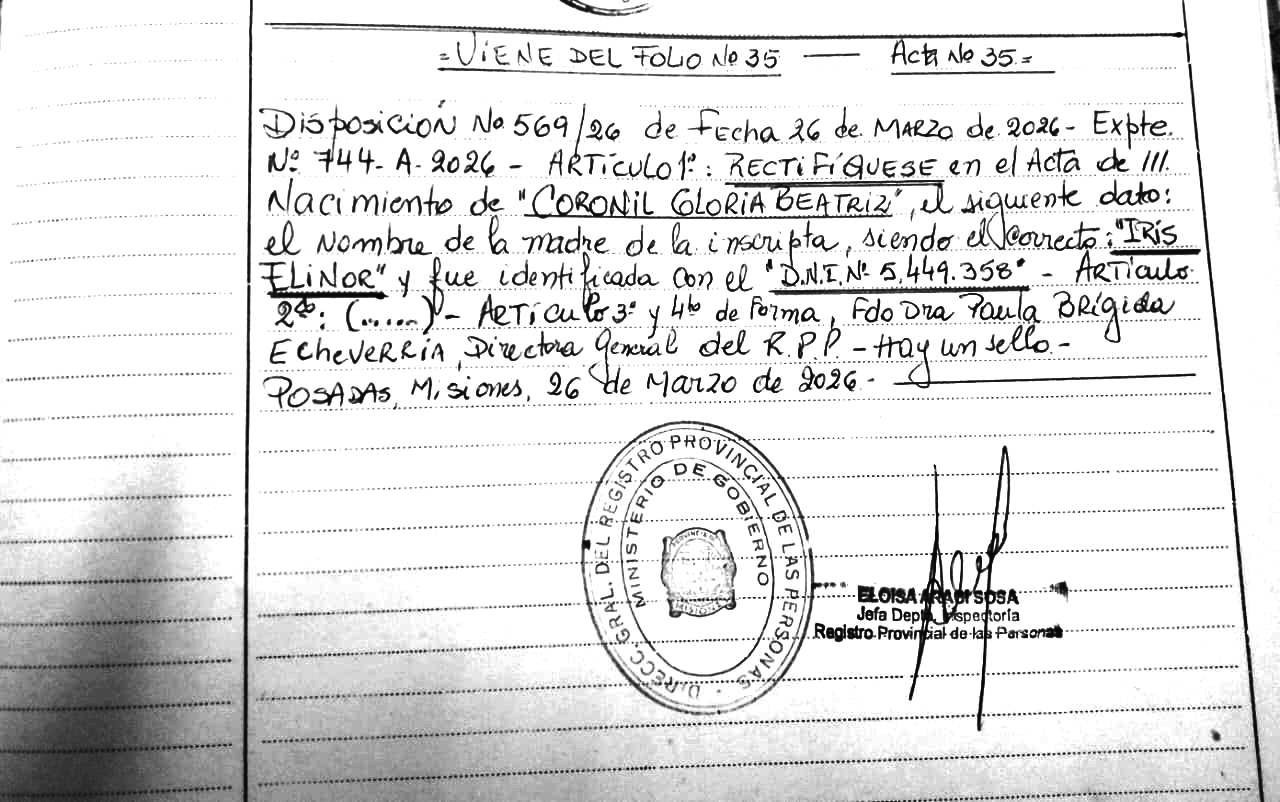 =VIENE DEL FOLIO Nº 35 — Acta Nº 35.=
Disposición Nº 569/26 de Fecha 26 de Marzo de 2026- Expte.
Nº 744-A-2026 - ARTÍCULO 1º: RECTIFÍQUESE en el Acta de ///.
Nacimiento de "CORONIL GLORIA BEATRIZ", el siguiente dato:
el Nombre de la madre de la inscripta, siendo el correcto: "IRIS
ELINOR" y fue identificada con el "D.N.I. Nº 5.449.358" - ARTículo
2do: (......) - ARTículo 3º y 4to de Forma, Fdo Dra Paula BRígida
ECHEVERRÍA, Directora General del R.P.P. - Hay un sello.-
POSADAS, Misiones, 26 de Marzo de 2026.-
DIRECC. GRAL. DEL REGISTRO PROVINCIAL DE LAS PERSONAS
MINISTERIO DE GOBIERNO
PROVINCIA DE
MISIONES
ELOISA ARADI SOSA
Jefa Depto. Inspectoría
Registro Provincial de las Personas